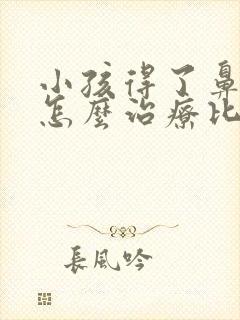 小孩得了鼻
怎麼治療比
長風吟